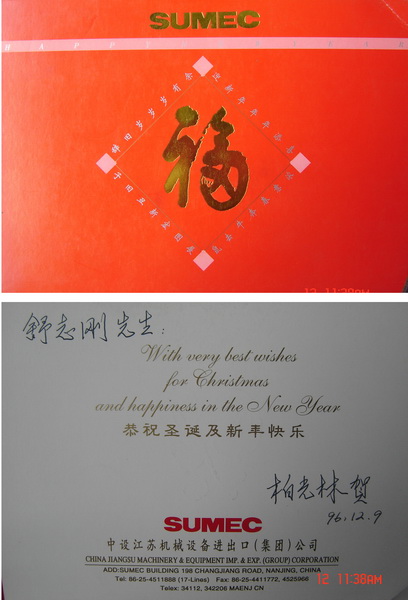 SUMEC
福
12 11:38AM
舒志刚先生:
With very best wishes
for Christmas
and happiness in the New Year
恭祝圣诞及新年快乐
柏光林贺
96.12.9
SUMEC
中设江苏机械设备进出口(集团)公司
CHINA JIANGSU MACHINERY & EQUIPMENT IMP. & EXP. (GROUP) CORPORATION
ADD:SUMEC BUILDING 198 CHANGJIANG ROAD, NANJING, CHINA
Tel: 86-25-4511888 (17-Lines) Fax: 86-25-4411772, 4525966
Telex: 34112, 342206 MAENJ CN
12 11:38AM